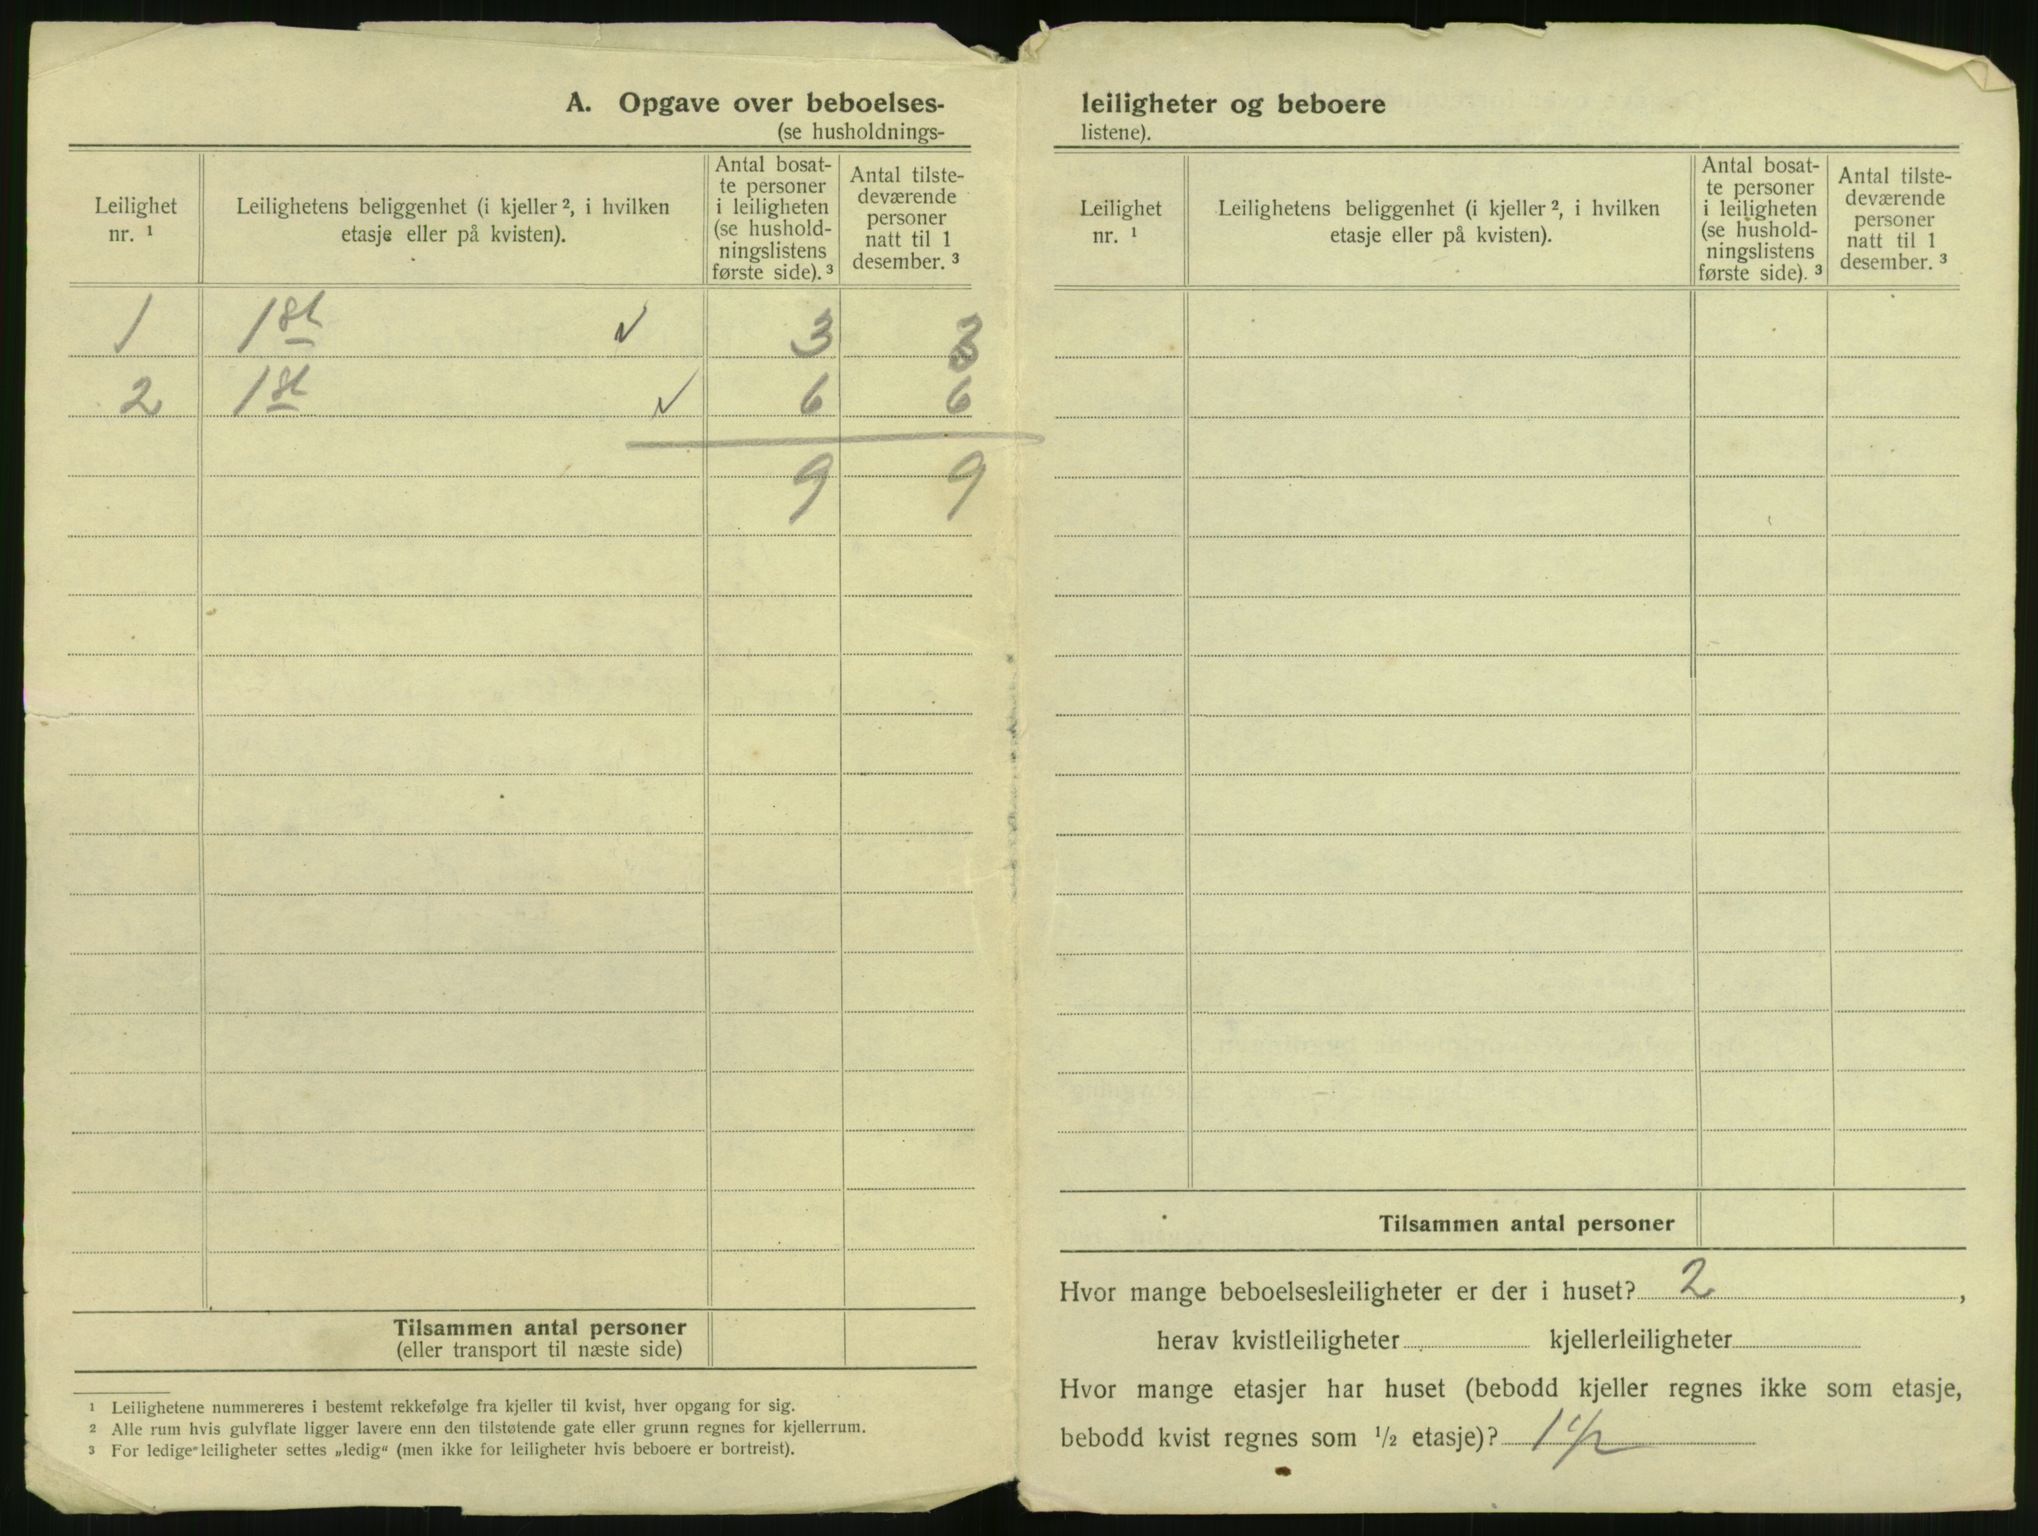 A. Opgave over beboelses-
(se husholdnings-
Leilighet
nr. ¹
Leilighetens beliggenhet (i kjeller ², i hvilken
etasje eller på kvisten).
Antal bosat-
te personer
i leiligheten
(se hushold-
ningslistens
første side). ³
Antal tilste-
deværende
personer
natt til 1
desember. ³
1 1st 3 3
2 1st 6 6
9 9
Tilsammen antal personer
(eller transport til næste side)
¹ Leilighetene nummereres i bestemt rekkefølge fra kjeller til kvist, hver opgang for sig.
² Alle rum hvis gulvflate ligger lavere enn den tilstøtende gate eller grunn regnes for kjellerrum.
³ For ledige leiligheter settes „ledig“ (men ikke for leiligheter hvis beboere er bortreist).
leiligheter og beboere
listene).
Leilighet
nr. ¹
Leilighetens beliggenhet (i kjeller ², i hvilken
etasje eller på kvisten).
Antal bosat-
te personer
i leiligheten
(se hushold-
ningslistens
første side). ³
Antal tilste-
deværende
personer
natt til 1
desember. ³
Tilsammen antal personer
Hvor mange beboelsesleiligheter er der i huset? 2,
herav kvistleiligheter kjellerleiligheter
Hvor mange etasjer har huset (bebodd kjeller regnes ikke som etasje,
bebodd kvist regnes som ½ etasje)? 1 1/2